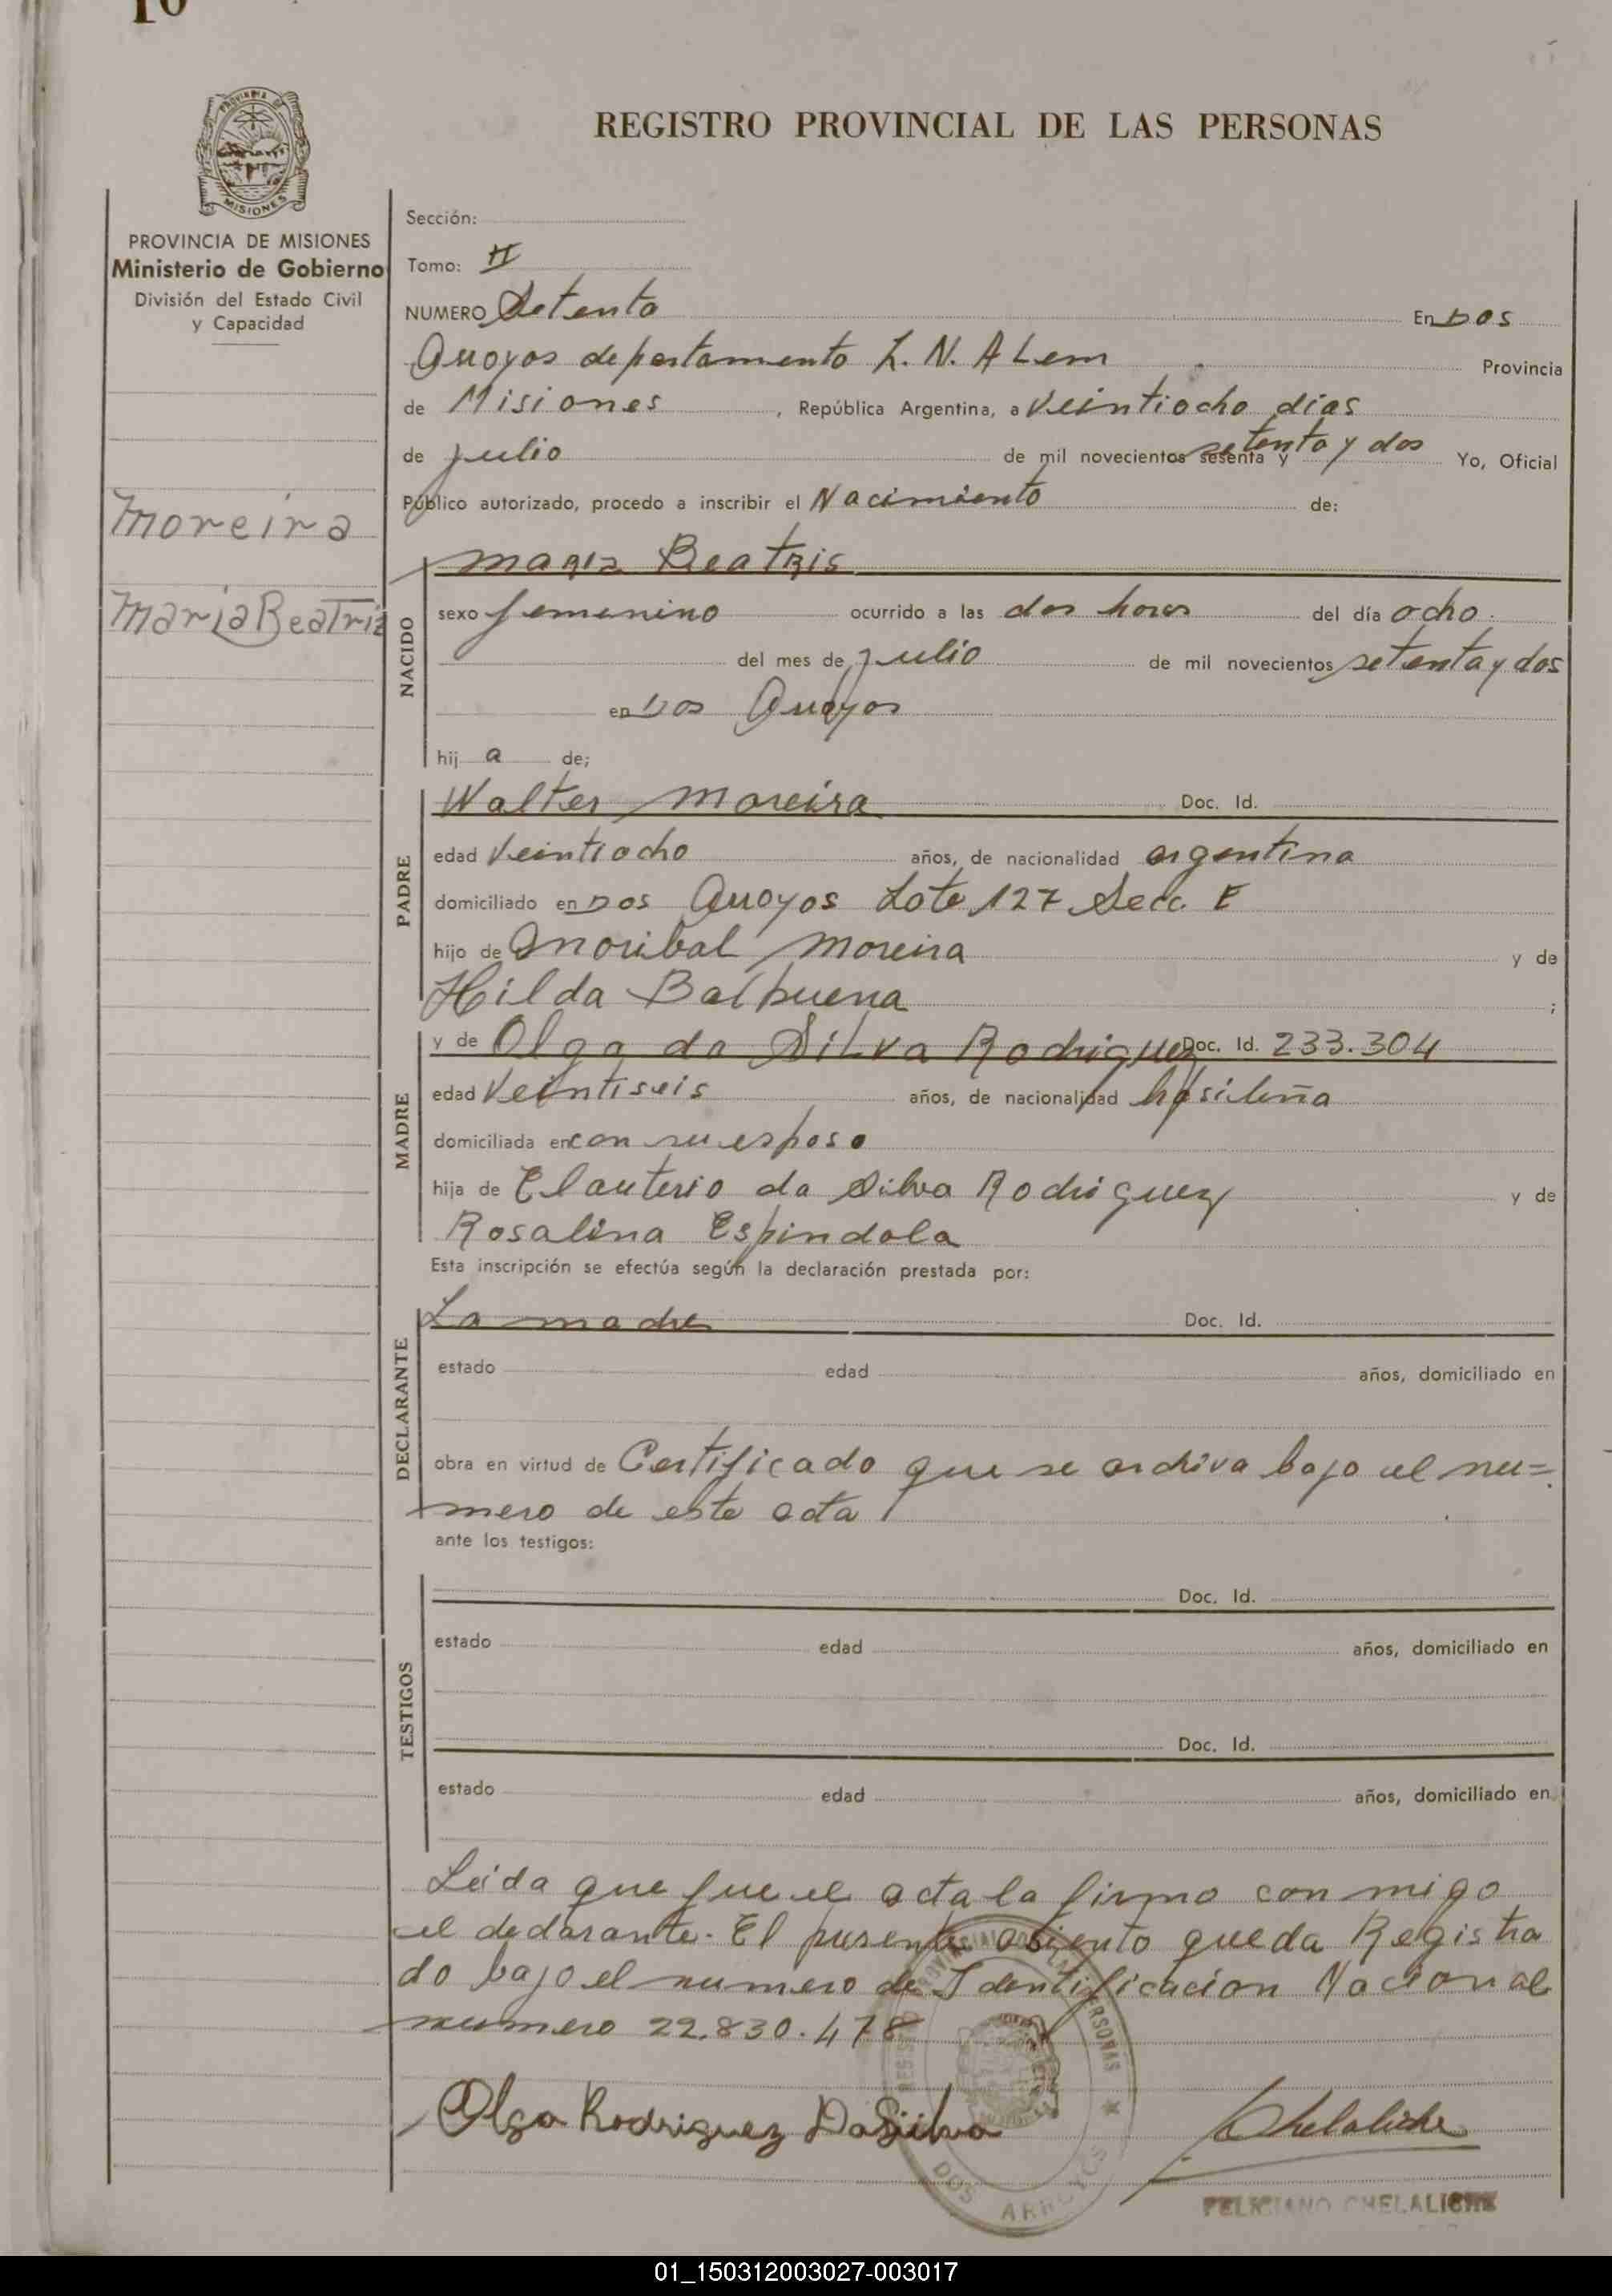 10
REGISTRO PROVINCIAL DE LAS PERSONAS
PROVINCIA DE MISIONES
Ministerio de Gobierno
División del Estado Civil
y Capacidad
Moreira
Maria Beatriz
Sección:
Tomo: II
NUMERO Setenta En Dos
Arroyos departamento L. N. ALem Provincia
de Misiones, República Argentina, a Veintiocho días
de julio de mil novecientos sesenta y setenta y dos Yo, Oficial
Público autorizado, procedo a inscribir el Nacimiento de:
NACIDO
Maria Beatris
sexo femenino ocurrido a las dos horas del día ocho
del mes de julio de mil novecientos setenta y dos
en Dos Arroyos
hija de;
PADRE
Walter Moreira Doc. Id.
edad Veintiocho años, de nacionalidad argentina
domiciliado en Dos Arroyos Lote 127 Secc. E
hijo de Moreira y de
Hilda Balbuena;
MADRE
y de Olga da Silva Rodriguez Doc. Id. 233.304
edad Veintiseis años, de nacionalidad brasileña
domiciliada en con su esposo
hija de Elauterio da Silva Rodriguez y de
Rosalina Espindola
Esta inscripción se efectúa según la declaración prestada por:
DECLARANTE
La madre Doc. Id.
estado edad años, domiciliado en
obra en virtud de Certificado que se archiva bajo el nu=
mero de esta acta
ante los testigos:
TESTIGOS
Doc. Id.
estado edad años, domiciliado en
Doc. Id.
estado edad años, domiciliado en
Leida que fue el acta la firmo con migo
el declarante. El presente asiento queda Registra
do bajo el numero de Identificacion Nacional
numero 22.830.478
Olga Rodriguez DaSiilva
Chelaliche
FELICIANO CHELALICHE
DOS ARROYOS
01_150312003027-003017